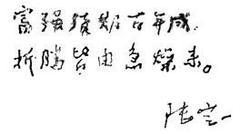 富强须期百年成
折腾皆由急燥来。
陆定一